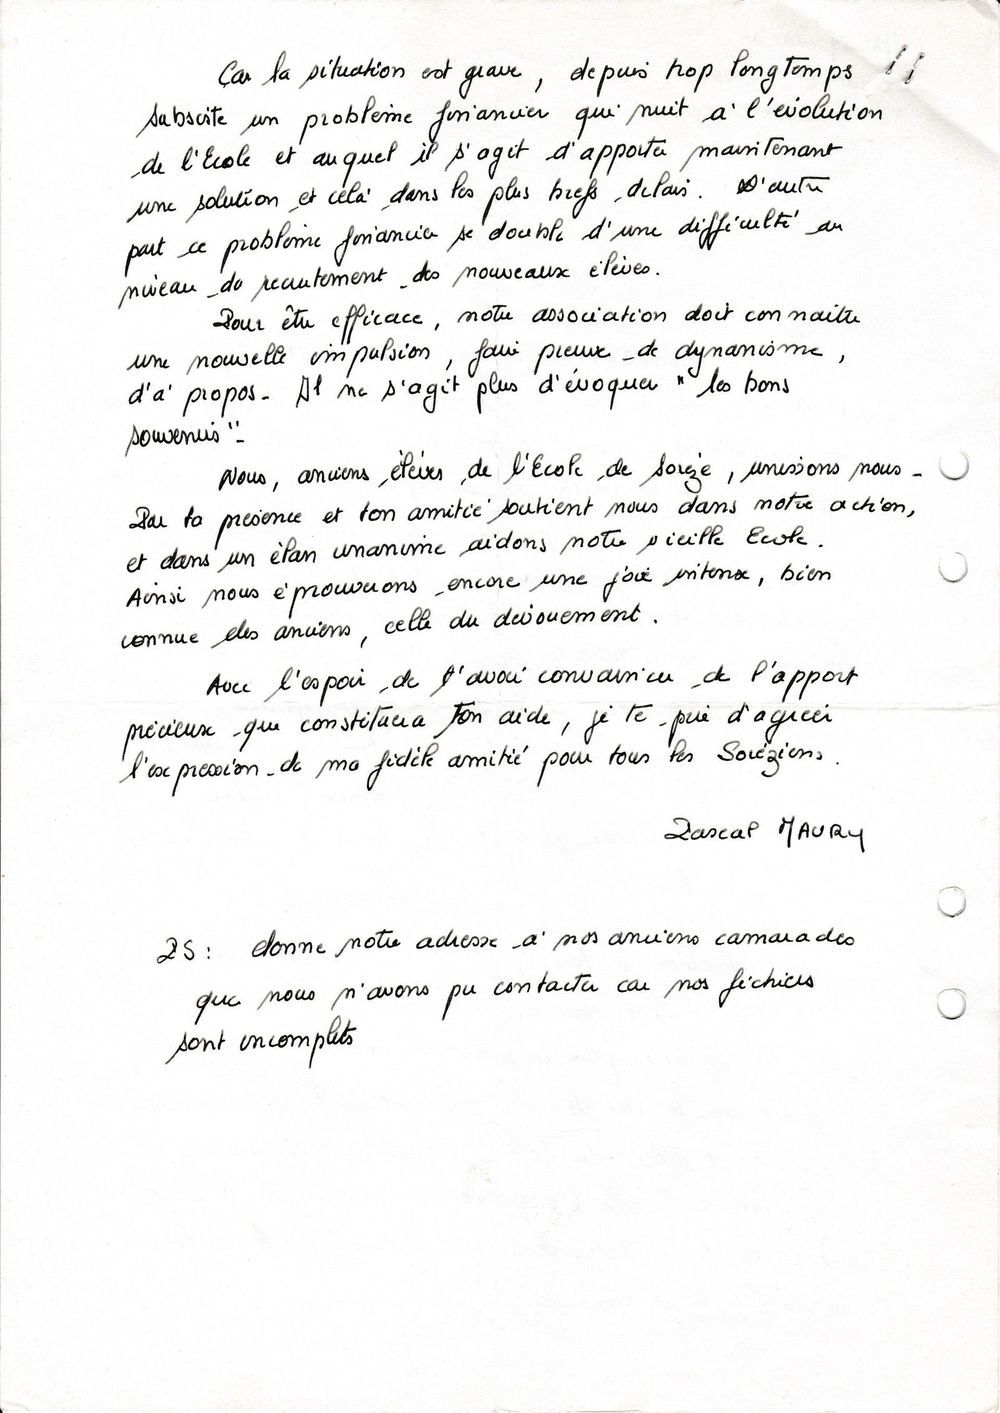 Car la situation est grave, depuis trop longtemps
subsiste un problème financier qui nuit à l'évolution
de l'Ecole et auquel il s'agit d'apporter maintenant
une solution et celà dans les plus brefs delais. D'autre
part ce problème financier se double d'une difficulté au
niveau du recrutement des nouveaux élèves.
Pour être efficace, notre association doit connaitre
une nouvelle impulsion, faire preuve de dynamisme,
d'à propos. Il ne s'agit plus d'évoquer "les bons
souvenirs".
Nous, anciens élèves de l'Ecole de Sorèze, unissons nous.
Par ta présence et ton amitié soutient nous dans notre action,
et dans un élan unanime aidons notre vieille Ecole.
Ainsi nous éprouverons encore une joie intense, bien
connue des anciens, celle du dévouement.
Avec l'espoir de t'avoir convaincu de l'apport
précieux que constituera ton aide, je te prie d'agréer
l'expression de ma fidèle amitié pour tous les Soréziens.
Pascal MAURY
PS: donne notre adresse à nos anciens camarades
que nous n'avons pu contacter car nos fichiers
sont incomplets